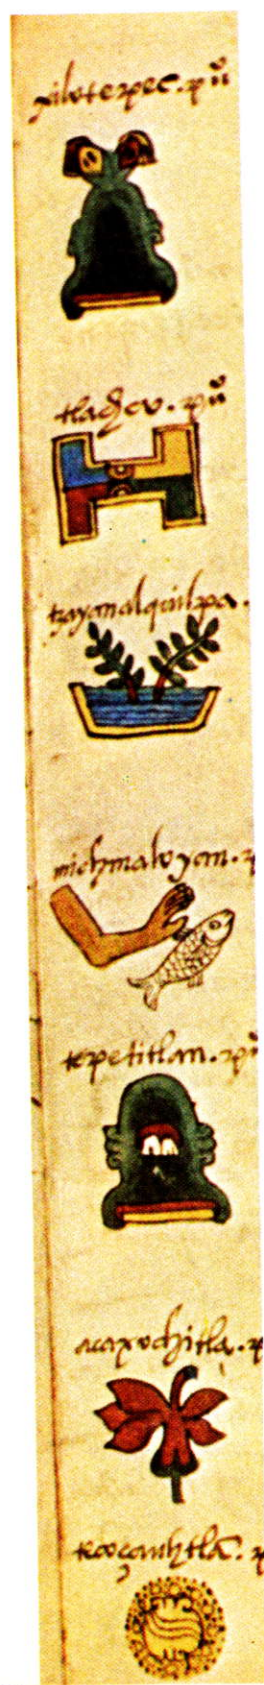 xilotepec. puº
tlachco. puº
tzayanalquilpa.
michmaloyan. p
tepetitlan. puº
acaxochitla. p
tecoçauhtla. p